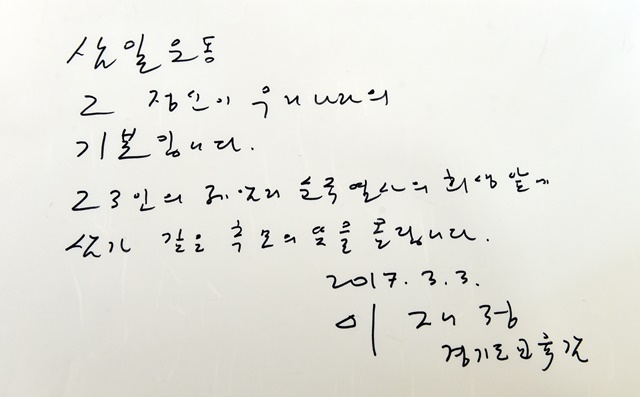 삼일운동
그 정신이 우리나라의
기본입니다.
23인의 제암리 순국열사의 희생 앞에
삼가 깊은 추모의 맘을 올립니다.
2017. 3. 3.
이 재정
경기도교육감